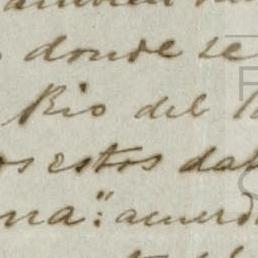 donde se
Rio del
os estos da
na": acuerd